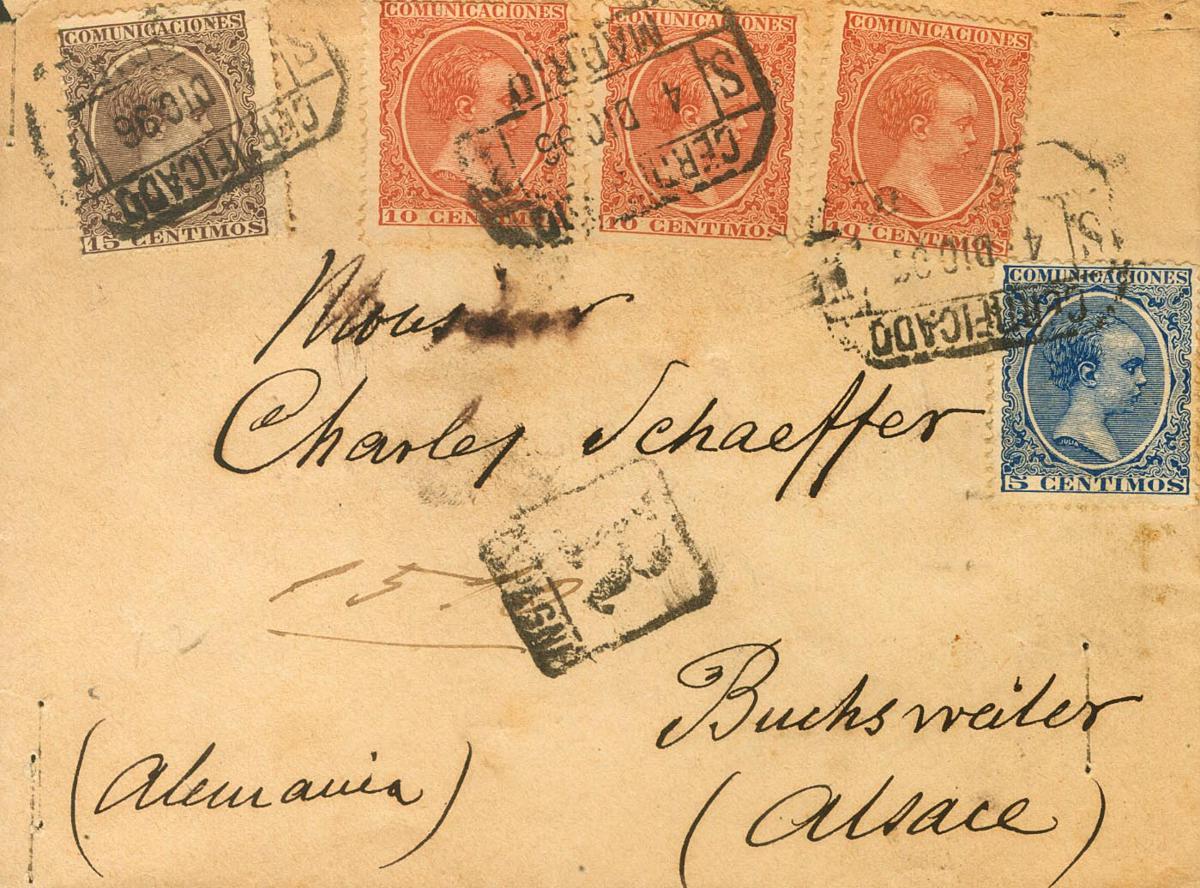 COMUNICACIONES
15 CENTIMOS
COMUNICACIONES
10 CENTIMOS
COMUNICACIONES
10 CENTIMOS
COMUNICACIONES
10 CENTIMOS
CERTIFICADO
DIC 96
CERTIFICADO
4 DIC 96
MADRID
CERTIFICADO
4 DIC 96
COMUNICACIONES
JULIA
5 CENTIMOS
Monsieur
Charles Schaeffer
R
Buchsweiler
(Alemania)
(Alsace)